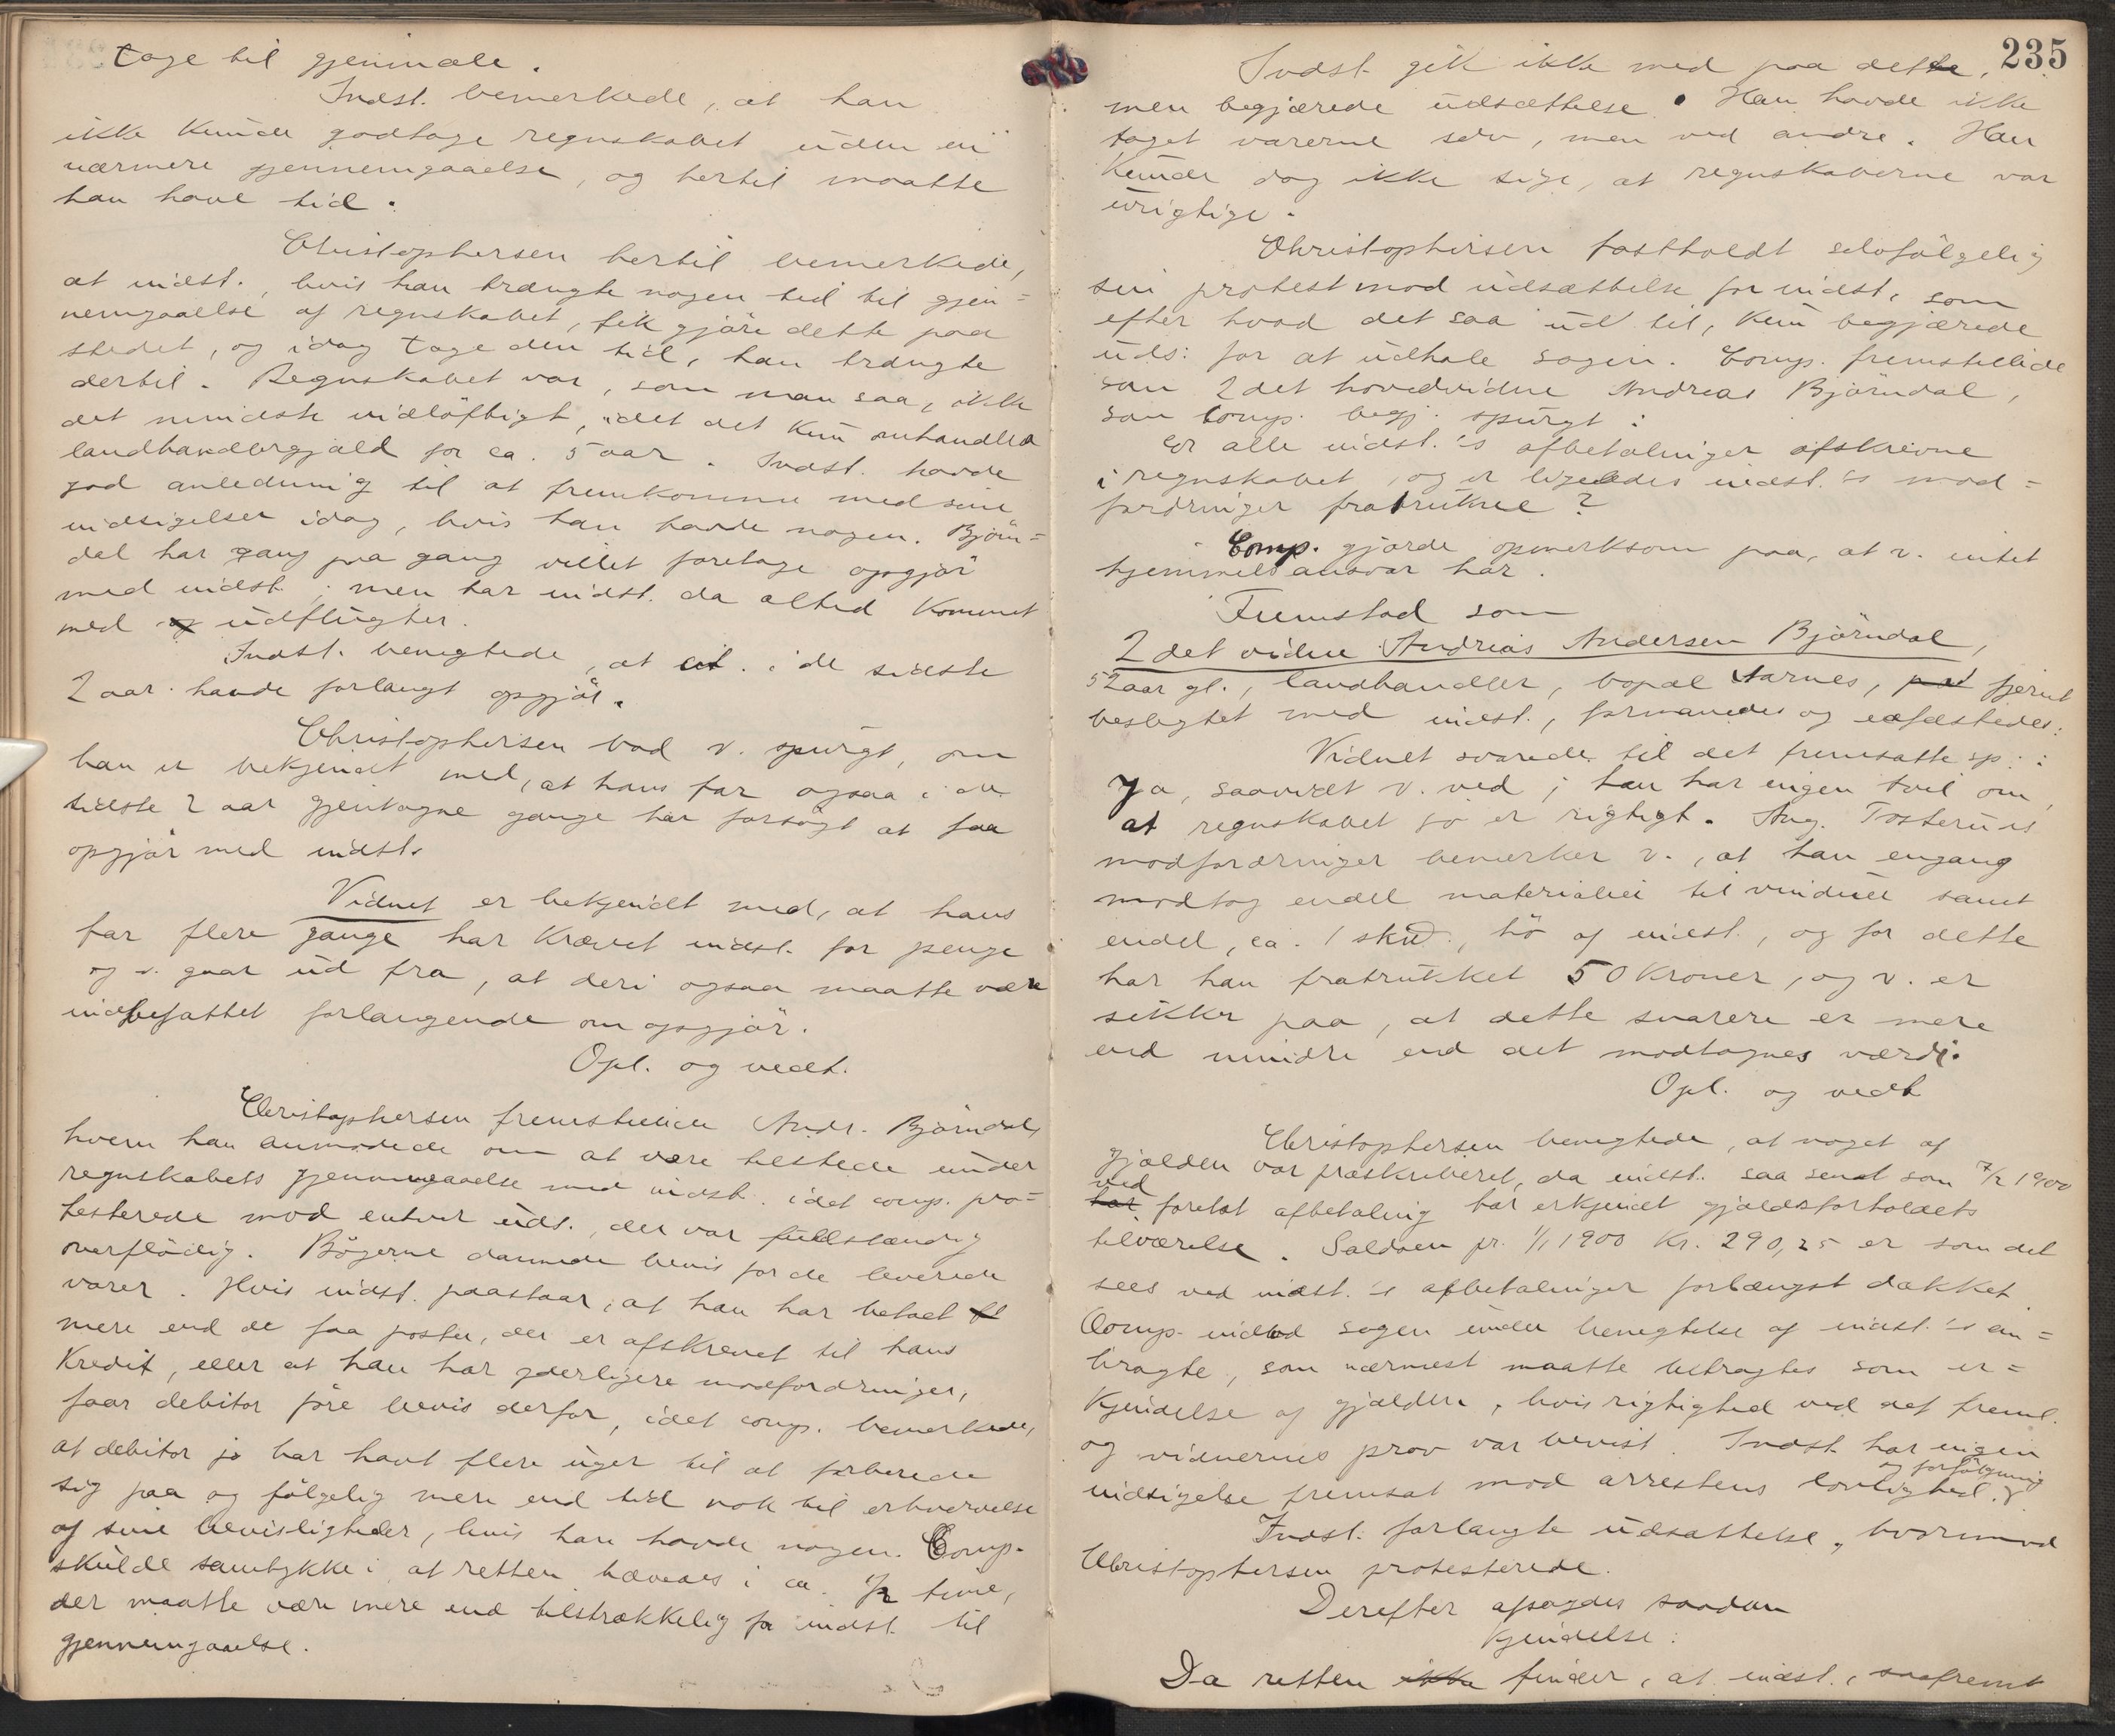 tage til gjenmæle.
Indst. bemerkede, at han
ikke kunde godtage regnskabet uden en
nærmere gjennemgaaelse, og hertil maatte
han have tid.
Christophersen hertil bemerkede,
at indst., hvis han trængte nogen tid til gjen=
nemgaaelse af regnskabet, fik gjøre dette paa
stedet, og idag tage den tid, han trængte
dertil. Regnskabet var, som man saa, ikke
det mindste vidløftigt, idet det kun omhandled
landhandlergjæld for ca. 5 aar. Indst. havde
god anledning til at fremkomme med sine
indsigelser idag, hvis han havde nogen. Bjørn=
dal har gang paa gang villet foretage opgjør
med indst., men har indst. da altid kommet
med udflugter.
Indst. benegtede, at cit. i de sidste
2 aar havde forlangt opgjør.
Christophersen bad v. spurgt, om
han er bekjendt med, at hans far ogsaa i de
sidste 2 aar gjentagne gange har forsøgt at faa
opgjør med indst.
Vidnet er bekjendt med, at hans
far flere gange har krævet indst. for penge
og v. gaar ud fra, at deri ogsaa maatte være
indbefattet forlangende om opgjør.
Opl. og vedt.
Christophersen fremstillede Andr. Bjørndal,
hvem han anmodede om at være tilstede under
regnskabets gjennemgaaelse med indst. idet comp. pro=
testerede mod enhver uds., der var fuldstændig
overflødig. Bøgerne dannede bevis for de leverede
varer. Hvis indst. paastaar, at han har betalt
mere end de faa poster, der er afskrevet til hans
Kredit, eller at han har yderligere modfordringer,
faar debitor føre bevis derfor, idet comp. bemerkede,
at debitor jo har havt flere uger til at forberede
sig paa og følgelig mere end tid nok til erhvervelse
af sine bevisligheder, hvis han havde nogen. Comp.
skulde samtykke i at retten hævedes i ca. 1/2 time,
der maatte være mere end tilstrækkelig for indst. til
gjennemgaaelse.
235
Indst. gik ikke med paa dette,
men begjærede udsættelse. Han havde ikke
taget varerne selv, men ved andre. Han
kunde dog ikke sige, at regnskaberne var
urigtige.
Christophersen fastholdt selvfølgelig
sin protest mod udsættelse for indst., som
efter hvad det saa ud til, kun begjærede
uds: for at udhale sagen. Comp. fremstillede
som 2det hovedvidne Andreas Bjørndal,
som comp. begj. spurgt:
Er alle indst.'s afbetalinger afskrevne
i regnskabet, og er ligeledes indst.'s mod=
fordringer fratrukne?
Comp. gjorde opmerksom paa, at v. intet
hjemmelsansvar har.
Fremstod som
2det vidne Andreas Andersen Bjørndal,
52 aar gl., landhandler, bopæl Aarnes, fjernt
beslegtet med indst., formanedes og edfæstedes:
Vidnet svarede til det fremsatte sp.:
Ja, saavidt v. ved; han har ingen tvil om,
at regnskabet jo er rigtigt. Ang. Tosteruds
modfordringer bemerker v., at han engang
modtog endel materialier til vinduer samt
endel, ca. 1 skpd., hø af indst., og for dette
har han fratrukket 50 kroner, og v. er
sikker paa, at dette snarere er mere
end mindre end det modtagnes værdi.
Opl. og vedt
Christophersen benegtede, at noget af
gjælden var præskriberet, da indst. saa sent som 7/2 1900
ved foretat afbetaling har erkjendt gjældsforholdets
tilværelse. Saldoen pr. 1/1 1900 Kr. 290,25 er som det
sees ved indst.'s afbetalinger forlængst dækket.
Comp. indlod sagen under benegtelse af indst.'s an=
bragte, som nærmest maatte betragtes som er=
kjendelse af gjælden, hvis rigtighed ved det freml.
og vidnernes prov var bevist. Indst. har ingen
indsigelse fremsat mod arrestens lovlighed og forfølgning.
Indst. forlangte udsættelse, hvorimod
Christophersen protesterede.
Derefter afsagdes saadan
Kjendelse:
Da retten finder, at indst., saafremt